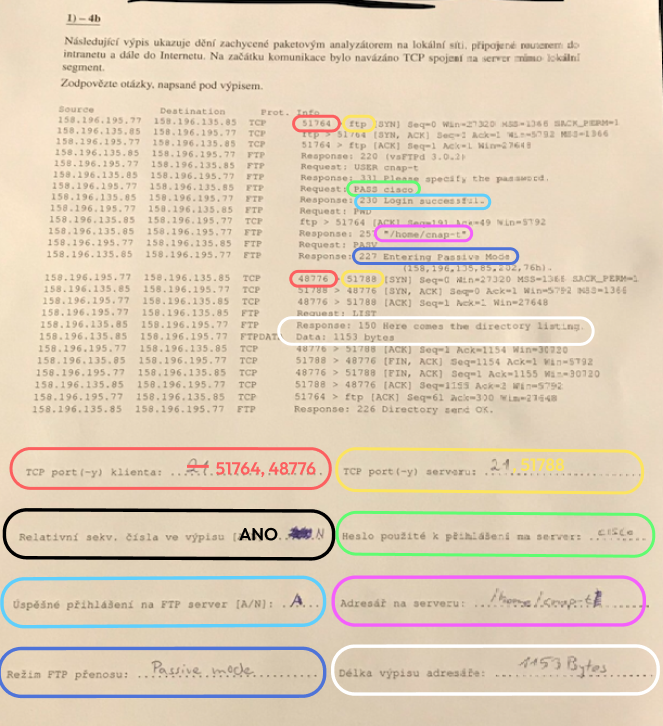 1) – 4b
Následující výpis ukazuje dění zachycené paketovým analyzátorem na lokální síti, připojené routerem do
intranetu a dále do Internetu. Na začátku komunikace bylo navázáno TCP spojení na server mimo lokální
segment.
Zodpovězte otázky, napsané pod výpisem.
Source Destination Prot. Info
158.196.195.77 158.196.135.85 TCP 51764 > ftp [SYN] Seq=0 Win=27320 MSS=1366 SACK_PERM=1
158.196.135.85 158.196.195.77 TCP ftp > 51764 [SYN, ACK] Seq=0 Ack=1 Win=5792 MSS=1366
158.196.195.77 158.196.135.85 TCP 51764 > ftp [ACK] Seq=1 Ack=1 Win=27648
158.196.135.85 158.196.195.77 FTP Response: 220 (vsFTPd 3.0.2)
158.196.195.77 158.196.135.85 FTP Request: USER cnap-t
158.196.135.85 158.196.195.77 FTP Response: 331 Please specify the password.
158.196.195.77 158.196.135.85 FTP Request: PASS cisco
158.196.135.85 158.196.195.77 FTP Response: 230 Login successful.
158.196.195.77 158.196.135.85 FTP Request: PWD
158.196.135.85 158.196.195.77 TCP ftp > 51764 [ACK] Seq=191 Ack=49 Win=5792
158.196.135.85 158.196.195.77 FTP Response: 257 "/home/cnap-t"
158.196.195.77 158.196.135.85 FTP Request: PASV
158.196.135.85 158.196.195.77 FTP Response: 227 Entering Passive Mode
(158,196,135,85,202,76h).
158.196.195.77 158.196.135.85 TCP 48776 > 51788 [SYN] Seq=0 Win=27320 MSS=1366 SACK_PERM=1
158.196.135.85 158.196.195.77 TCP 51788 > 48776 [SYN, ACK] Seq=0 Ack=1 Win=5792 MSS=1366
158.196.195.77 158.196.135.85 TCP 48776 > 51788 [ACK] Seq=1 Ack=1 Win=27648
158.196.195.77 158.196.135.85 FTP Request: LIST
158.196.135.85 158.196.195.77 FTP Response: 150 Here comes the directory listing.
158.196.135.85 158.196.195.77 FTPDAT. Data: 1153 bytes
158.196.195.77 158.196.135.85 TCP 48776 > 51788 [ACK] Seq=1 Ack=1154 Win=30720
158.196.195.77 158.196.135.85 TCP 48776 > 51788 [FIN, ACK] Seq=1 Ack=1155 Win=30720
158.196.135.85 158.196.195.77 TCP 51788 > 48776 [ACK] Seq=1155 Ack=2 Win=5792
158.196.195.77 158.196.135.85 TCP 51764 > ftp [ACK] Seq=61 Ack=300 Win=27648
158.196.135.85 158.196.195.77 FTP Response: 226 Directory send OK.
TCP port(-y) klienta: 21 51764, 48776
TCP port(-y) serveru: 21, 51788
Relativní sekv. čísla ve výpisu ANO N
Heslo použité k přihlášení na server: cisco
Úspěšné přihlášení na FTP server [A/N]: A
Adresář na serveru: /home/cnap-t
Režim FTP přenosu: Passive mode
Délka výpisu adresáře: 1153 Bytes